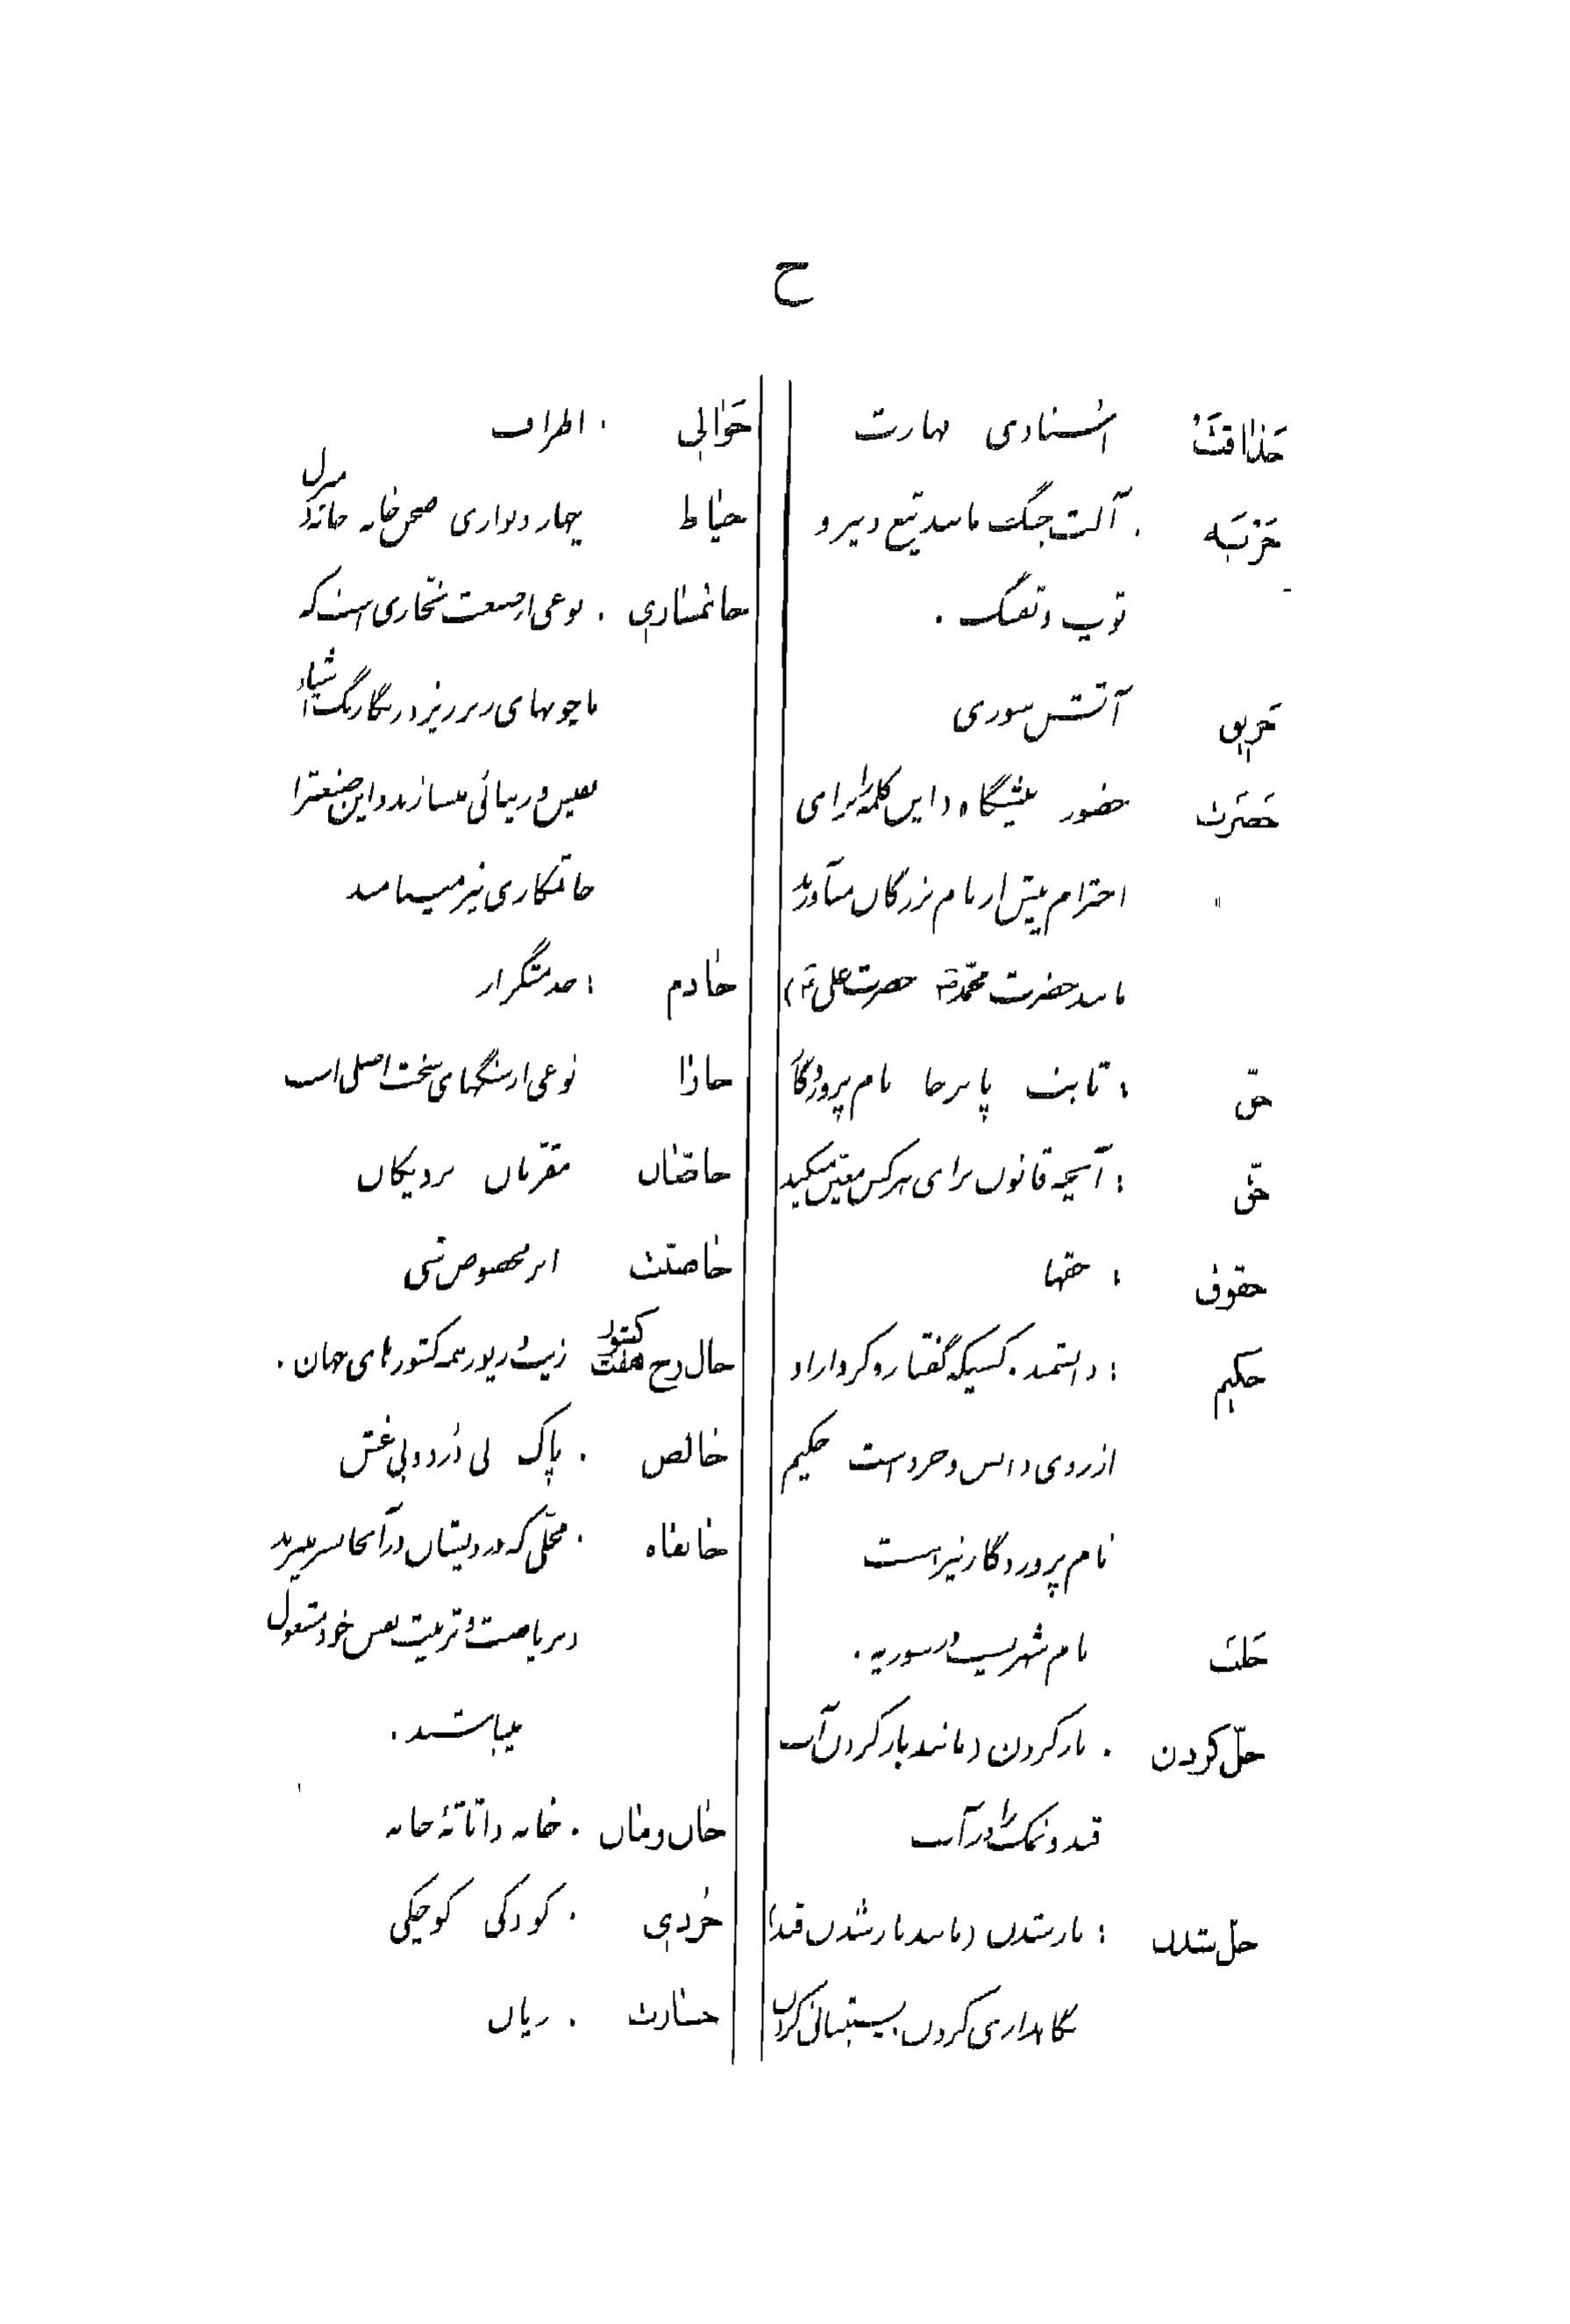 ح
حَذاقَت استادی مهارت
حَرْبَه . آلت جنگ مانند تیغ و تیر و
توپ و تفنگ .
حَریق آتش سوزی
حَضرَت حضور پیشگاه و این کلمه را برای
احترام پیش از نام بزرگان میآورند
مانند حضرت محمّد ص حضرت علی ع)
حقّ : ثابت پا برجا نام پروردگار
حقّ : آنچه قانون برای هر کس معیّن میکند
حقوق : حقها
حکیم : دانشمند . کسیکه گفتار و کردار او
از روی دانش و خرد است حکیم
نام پروردگار نیز است
حَلَب نام شهریست در سوریه .
حلّ کردن . باز کردن (مانند باز کردن آب
قند و نمک را در آب
حلّ شدن : باز شدن (مانند باز شدن قند
نگاهداری کردن پشتیبانی کردن
حَوالی . اطراف
حیاط چهار دیواری صحن خانه خانه منزل
خاتمسازی . نوعی از صنعت نجّاری است که
با چوبهای ریز ریز و رنگارنگ اشیاء
نفیس و زیبائی میسازند و این صنعت را
خاتمکاری نیز مینامند
خادم : خدمتگزار
خارا نوعی از سنگهای سخت اصلی است
خاصّان مقرّبان نزدیکان
خاصیّت اثر مخصوص شیء
خال رخ هفت کشور زینت و زیور همه کشورهای جهان .
خالص . پاک بی دُرد و بی غش
خانقاه . محلّی که درویشان در آنجا بسر میبرند
و بریاضت و تربیت نفس خود مشغول
میباشند .
خان و مان . خانه و اثاثهٔ خانه
خُردی . کودکی کوچکی
خسارت . زیان